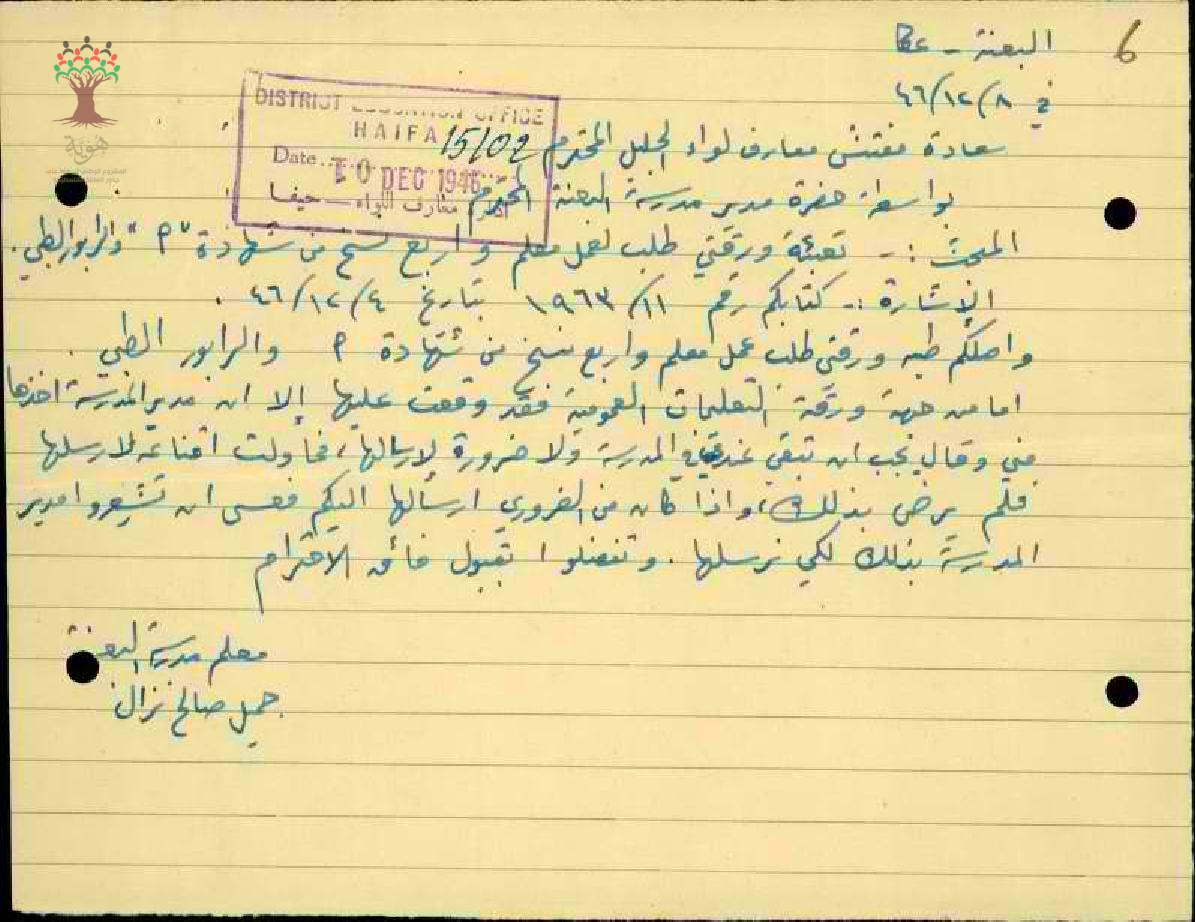 6
البعنة - عكا
في ٤٦/١٢/٨
DISTRICT EDUCATION OFFICE
HAIFA
15/02
Date 10 DEC 1946
معارف اللواء — حيفا
هوية
سعادة مفتش معارف لواء الجليل المحترم
بواسطة حضرة مدير مدرسة البعنة المحترم
المبحث :- تعبئة ورقتي طلب لعمل معلم واربع نسخ من شهادة "م" والرابور الطبي.
الاشارة :- كتابكم رقم ١٩٦٣/١١ بتاريخ ٤٦/١٢/٤ .
واصلكم طيه ورقتي طلب عمل معلم واربع نسخ من شهادة م والرابور الطبي .
اما من جهة ورقة التعليمات العمومية فقد وقعت عليها إلا ان مدير المدرسة اخذها
مني وقال يجب ان تبقى عندي في المدرسة ولا ضرورة لارسالها، فحاولت اقناعه لارسلها
فلم يرض بذلك، واذا كان من الضروري ارسالها اليكم فعسى ان تشعروا مدير
المدرسة بذلك لكي نرسلها . وتفضلوا بقبول فائق الاحترام
معلم مدرسة البعنة
جميل صالح نزال